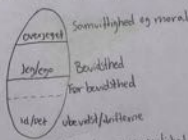 overjeget Samvittighed og moral
Jeg/ego Bevidsthed
Før bevidsthed
id/det ubevidst/drifterne